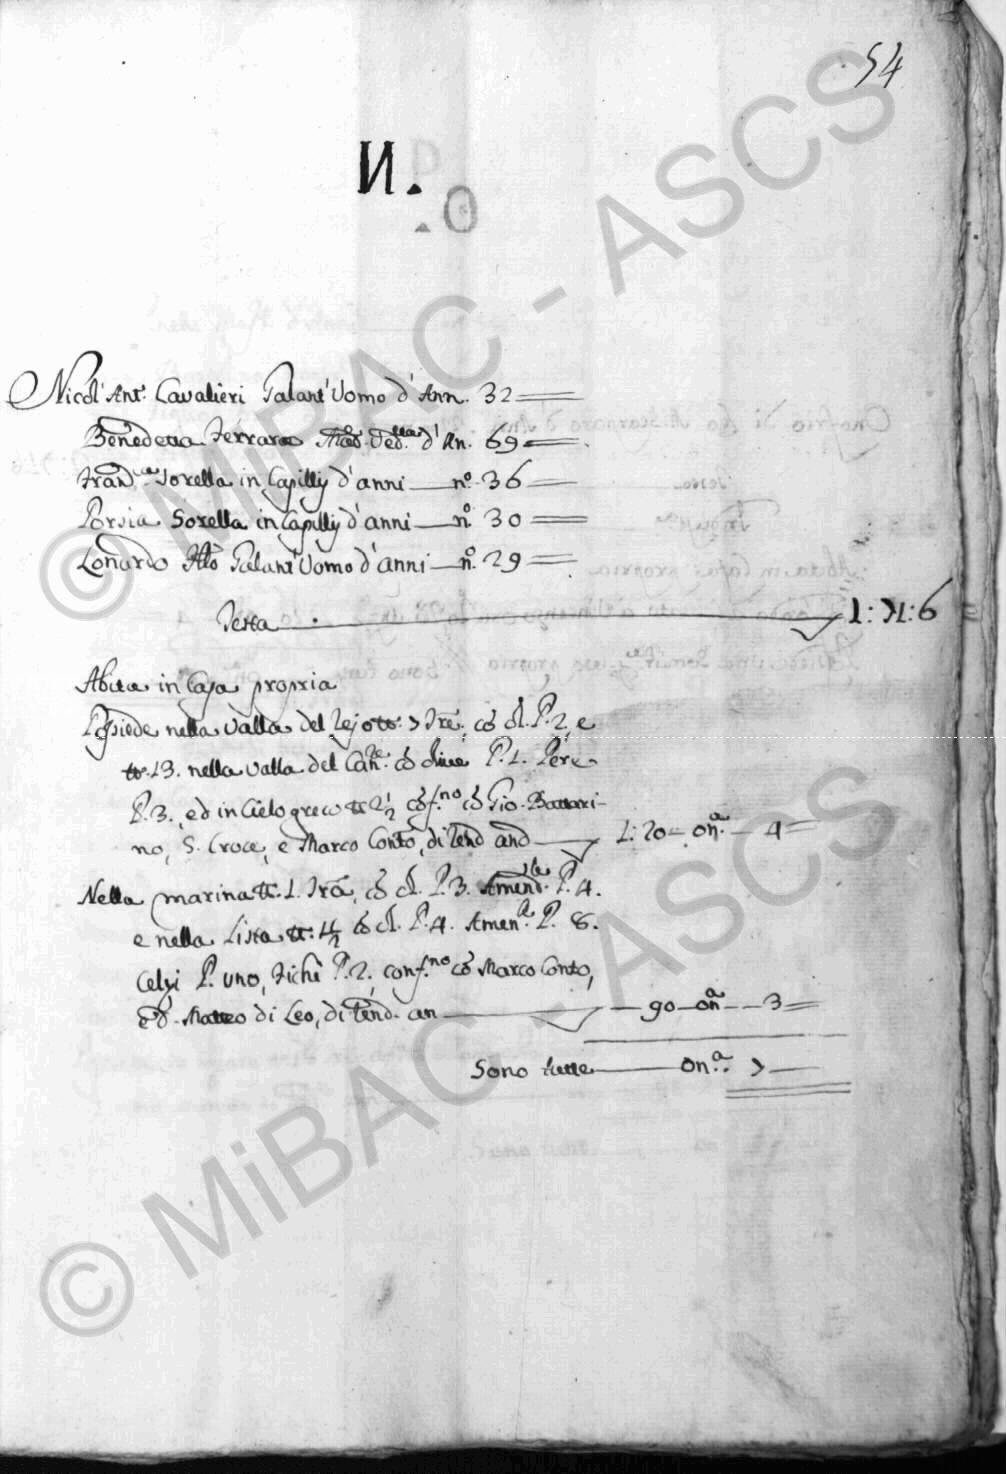 54
N.
Nicol' Ant.° Cavalieri Galant'Uomo d'Ann. 32
Benedetta Ferrara Mad.e Ved.a d'An. 69
Fran.ca Sorella in Capillij d'anni n.° 36
Porzia Sorella in Capillij d'anni n.° 30
Lonardo Galant'Uomo d'anni n.° 29
Testa 1:
Abita in Casa propria
Possiede nella Valla del tt.a Tre, có P. 2, e
tt. 13. nella Valla del có P. 1. Pere
P. 3., ed in Cielo greco tt 2½ cóf.no có Gio. Battari-
no, S. Croce, e Marco Conto, di Rend and 1:20 - on.a - 4
Nella marina tt. 1. có P. 3. Amend.le P. 4.
e nella Lista có P. 4. Amen.le P. 8.
Celzi P. uno, Fichi P. 2, conf.no có Marco Conto,
ed Matteo di Leo, di Rend. an 90 - on.a - 3
Sono tutte on.a 7
© MiBAC - ASCS
© MiBAC - ASCS